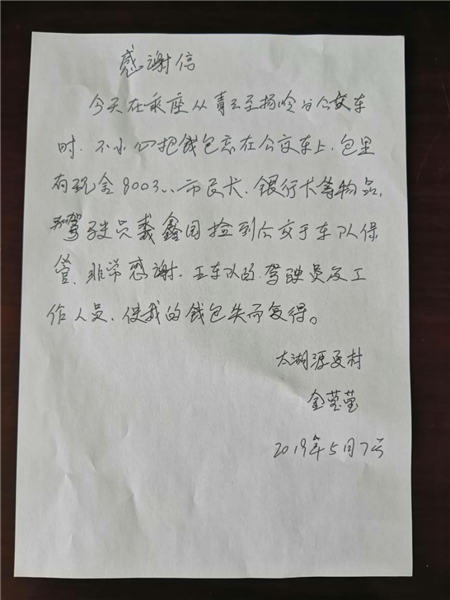 感谢信
今天在乘座从青云至扬岭公交车
时.不小心把钱包忘在公交车上,包里
有现金8003...市民卡、银行卡等物品,
驾驶员裁鑫园捡到后交于车队保
管.非常感谢.五车队的.驾驶员及工
作人员.使我的钱包失而复得。
太湖源夏村
金莹莹
2019年5月7号